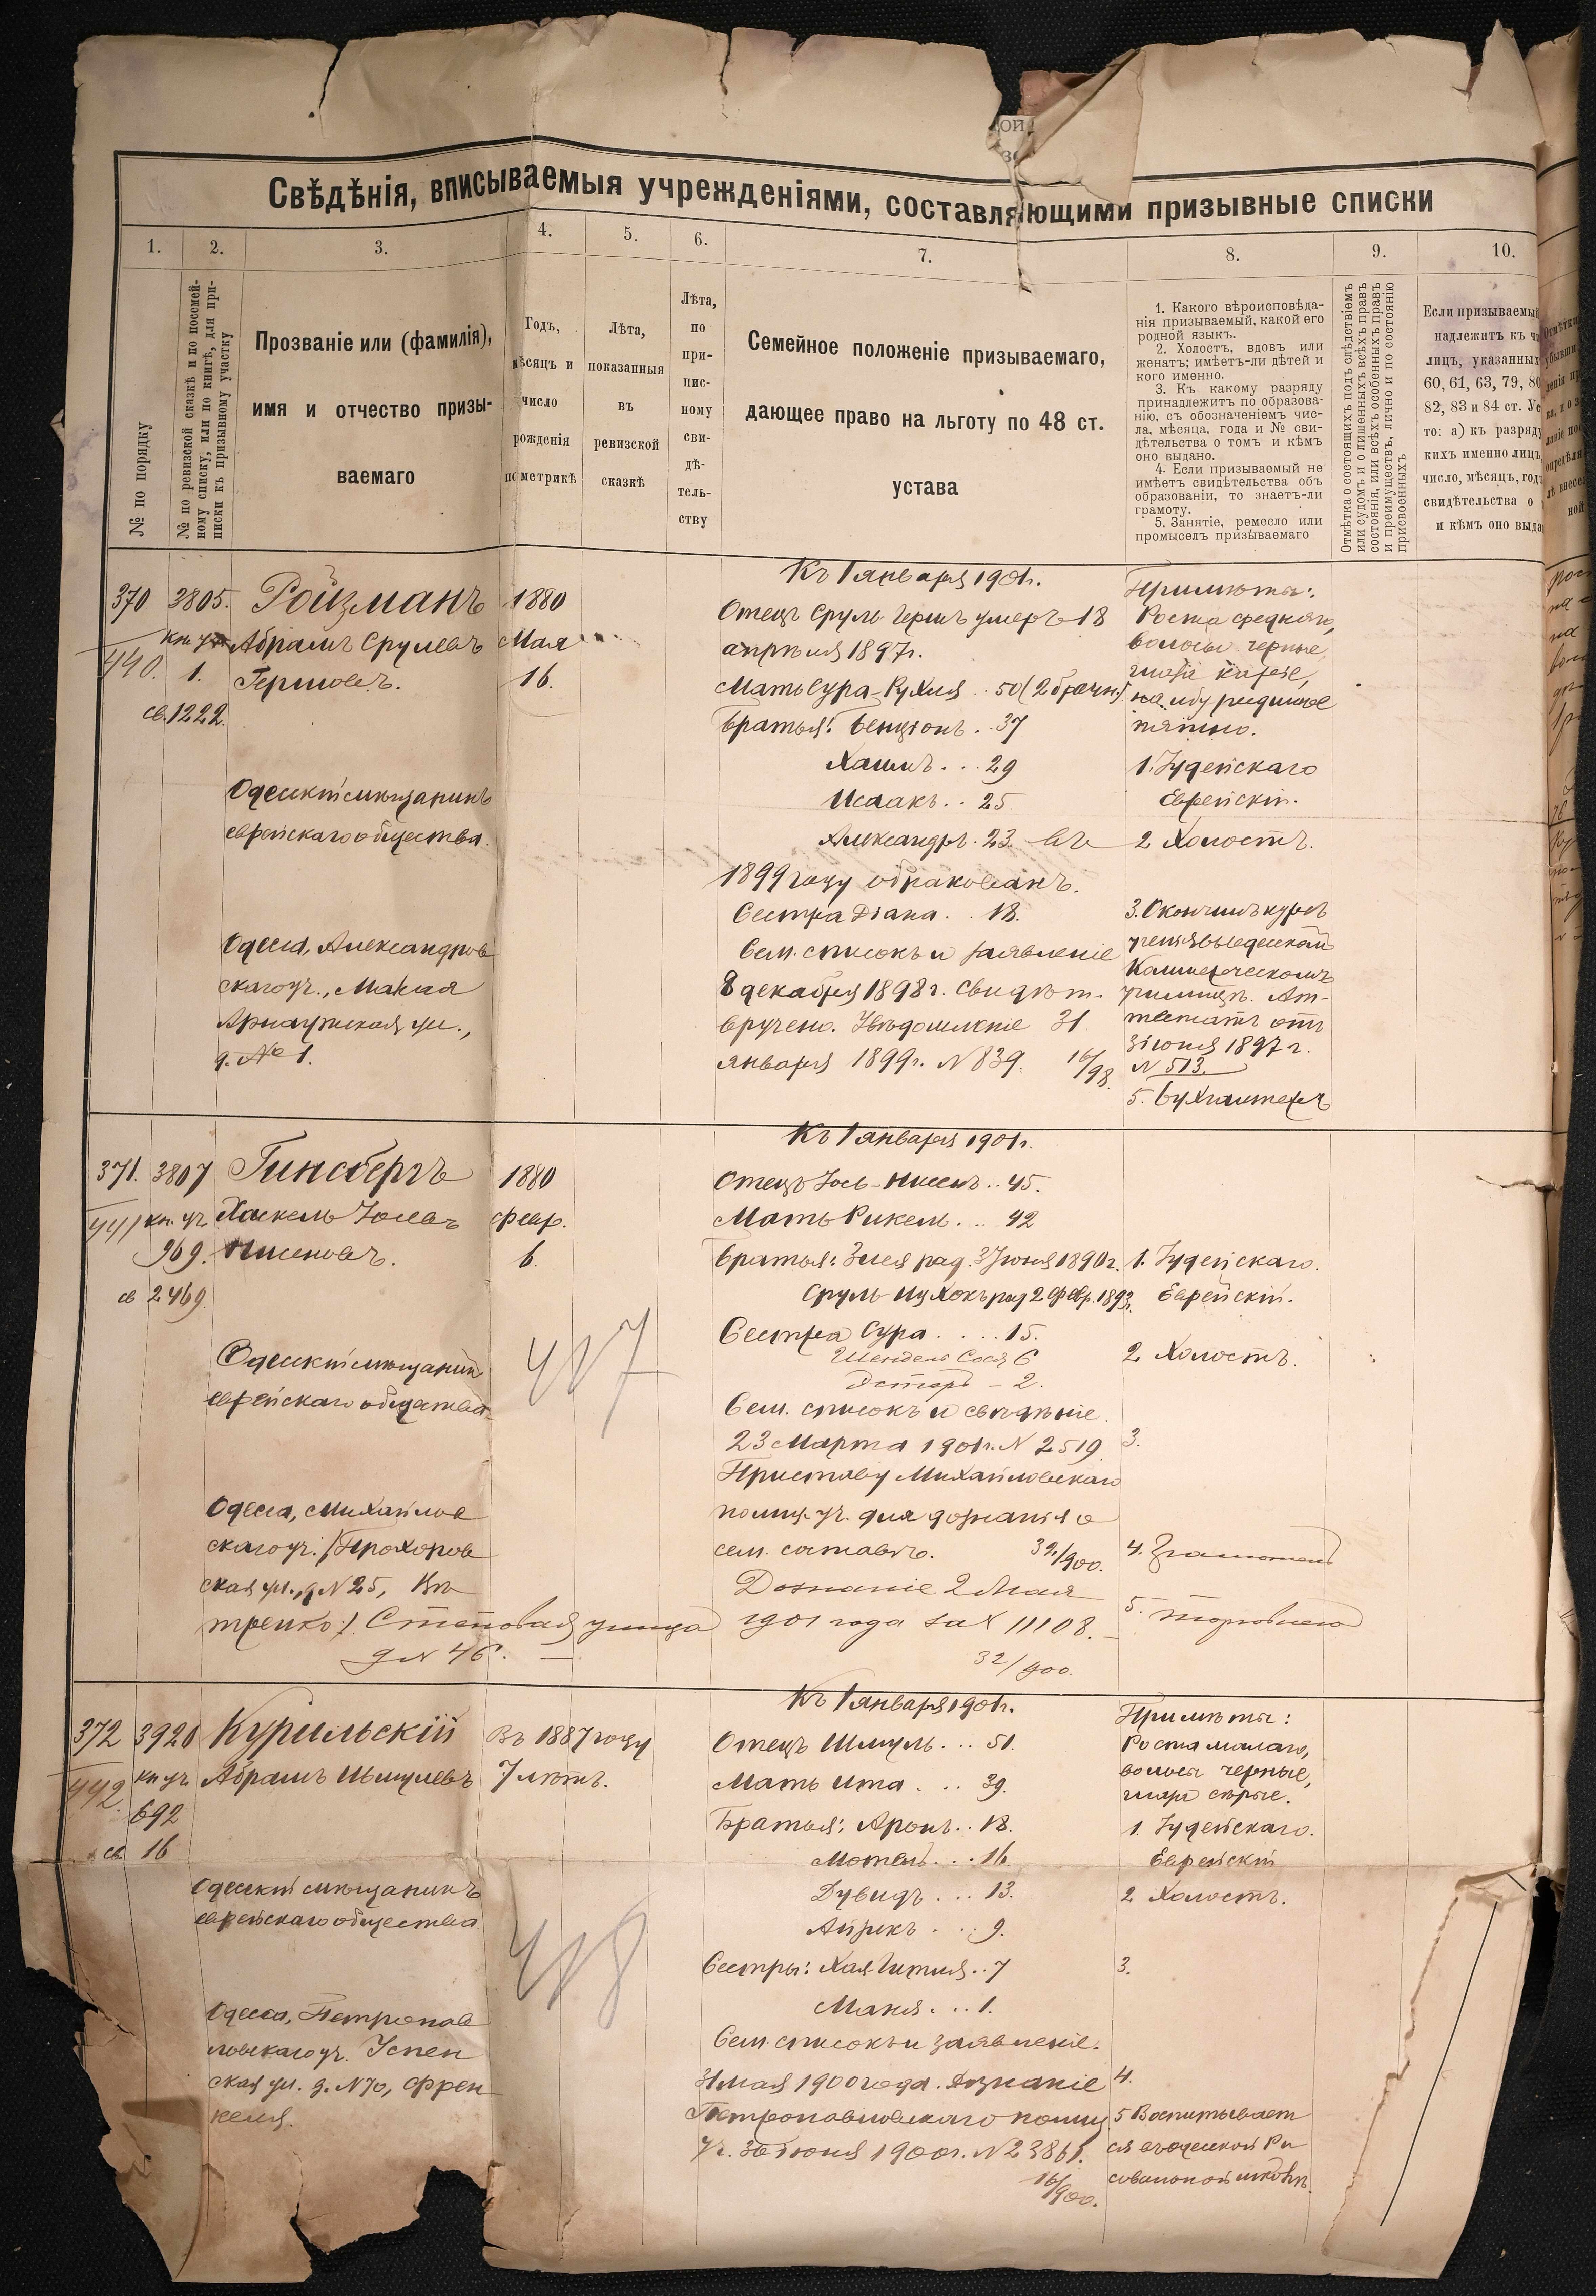 Свѣдѣнія, вписываемыя учрежденіями, составляющими призывные списки
1.
2.
3.
4.
5.
6.
7.
8.
9.
10.
№ по порядку
№ по ревизской сказкѣ и по посемей-
ному списку, или по книгѣ, для при-
писки къ призывному участку
Прозваніе или (фамилія),
имя и отчество призы-
ваемаго
Годъ,
мѣсяцъ и
число
рожденія
по метрикѣ
Лѣта,
показанныя
въ
ревизской
сказкѣ
Лѣта,
по
при-
пис-
ному
сви-
дѣ-
тель-
ству
Семейное положеніе призываемаго,
дающее право на льготу по 48 ст.
устава
1. Какого вѣроисповѣда-
нія призываемый, какой его
родной языкъ.
2. Холостъ, вдовъ или
женатъ; имѣетъ-ли дѣтей и
кого именно.
3. Къ какому разряду
принадлежитъ по образова-
нію, съ обозначеніемъ чис-
ла, мѣсяца, года и № сви-
дѣтельства о томъ и кѣмъ
оно выдано.
4. Если призываемый не
имѣетъ свидѣтельства объ
образованіи, то знаетъ-ли
грамоту.
5. Занятіе, ремесло или
промыселъ призываемаго
Отмѣтка о состоящихъ подъ слѣдствіемъ
или судомъ и о лишенныхъ всѣхъ правъ
состоянія, или всѣхъ особенныхъ правъ
и преимуществъ, лично и по состоянію
присвоенныхъ
Если призываемый
надлежитъ къ
лицъ, указанныхъ
60, 61, 63, 79, 80
82, 83 и 84 ст. Ус
то: а) къ разряду
кихъ именно лицъ
число, мѣсяцъ, годъ
свидѣтельства о
и кѣмъ оно выда
370
440.
3805.
кн. уч
1.
св. 1222.
Ройзманъ
Абрамъ Срулевъ
Гершовъ.
Одесскій мѣщанинъ
еврейскаго общества.
Одесса, Александров
скаго уч., Малая
Арнаутская ул.,
д. № 1.
1880
Мая
16.
Къ 1 января 1901 г.
Отецъ Сруль Гершъ умеръ 18
апрѣля 1897 г.
Мать Сура-Рухля .. 50 (2 брачн.)
Братья: Бенціонъ .. 37
Хаимъ ... 29
Исаакъ .. 25.
Александръ . 23. въ
1899 году обракованъ.
Сестра Діана .. 18.
Сем. списокъ и заявленіе
8 декабря 1898 г. Свидѣт.
вручено. Увѣдомленіе 31
января 1899 г. N 839. 16/98.
Примѣты:
Роста средняго,
волосы черные,
глаза каріе,
на лбу родимое
пятно.
1. Іудейскаго
Еврейскій.
2 Холостъ.
3. Окончилъ курсъ
ученія въ Одесскомъ
Коммерческомъ
училищѣ. Ат-
тестатъ отъ
3 іюня 1897 г.
N 513.
5. Бухгалтеръ
371.
441
3807
кн. уч.
969.
св 2469.
Гинсбергъ
Хаскель Іосевъ
Нисеновъ.
Одесскій мѣщанинъ
еврейскаго общества.
Одесса, Михайлов
скаго уч. /Прохоров
ская ул., д N 25,
Степовая улица
д N 46.
1880
Февр.
6.
417
Къ 1 января 1901 г.
Отецъ Іось-Нисенъ .. 45.
Мать Рикель ... 42
Братья: Зися род. 3 Іюня 1890 г.
Сруль Ицхокъ род 2 февр. 1893 г.
Сестра Сура .... 15.
Шендель Сося 6
Эстеръ - 2.
Сем. списокъ и свѣдѣніе.
23 Марта 1901 г. N 2519
Приставу Михайловскаго
полиц. уч. для дознанія о
сем. составѣ. 32/900.
Дознаніе 2 Мая
1901 года за N 11108.
32/900.
1. Іудейскаго.
Еврейскій.
2 Холостъ.
3.
4. Грамотенъ
5. торговлею
372
442.
3920
кн уч
692
св 16
Курильскій
Абрамъ Шмулевъ
Одесскій мѣщанинъ
еврейскаго общества
Одесса, Петропав
ловскаго уч. Успен
ская ул. д. N 70, Френ
келя.
Въ 1887 году
7 лѣтъ.
418
Къ 1 января 1901 г.
Отецъ Шмуль ... 51.
Мать Ита ... 39.
Братья: Аронъ .. 18.
Мотель ... 16.
Дувидъ ... 13.
Айзикъ ... 9.
Сестры: Хая Гитля .. 7
Маня ... 1.
Сем. списокъ и заявленіе.
31 мая 1900 года. Дознаніе
Петропавловскаго полиц.
Уч. 30 Іюня 1900 г. N 23861.
16/900.
Примѣты:
Роста малаго,
волосы черные,
глаза сѣрые.
1. Іудейскаго.
Еврейскій
2 Холостъ.
3.
4.
5 Воспитывает
ся въ одесской Ри
совальной школѣ.